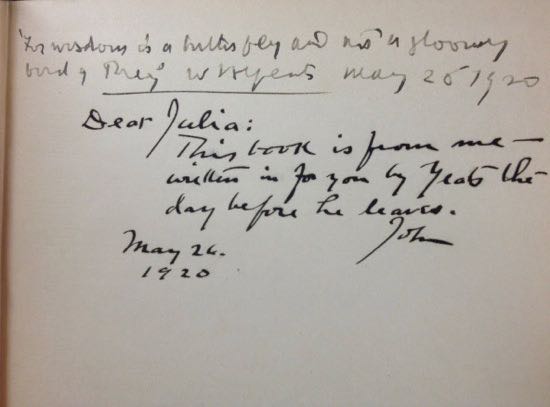 "For wisdom is a butterfly and not a gloomy
bird of Prey" W B Yeats May 25 1920
Dear Julia:
This book is from me —
written in for you by Yeats the
day before he leaves.
John
May 26.
1920